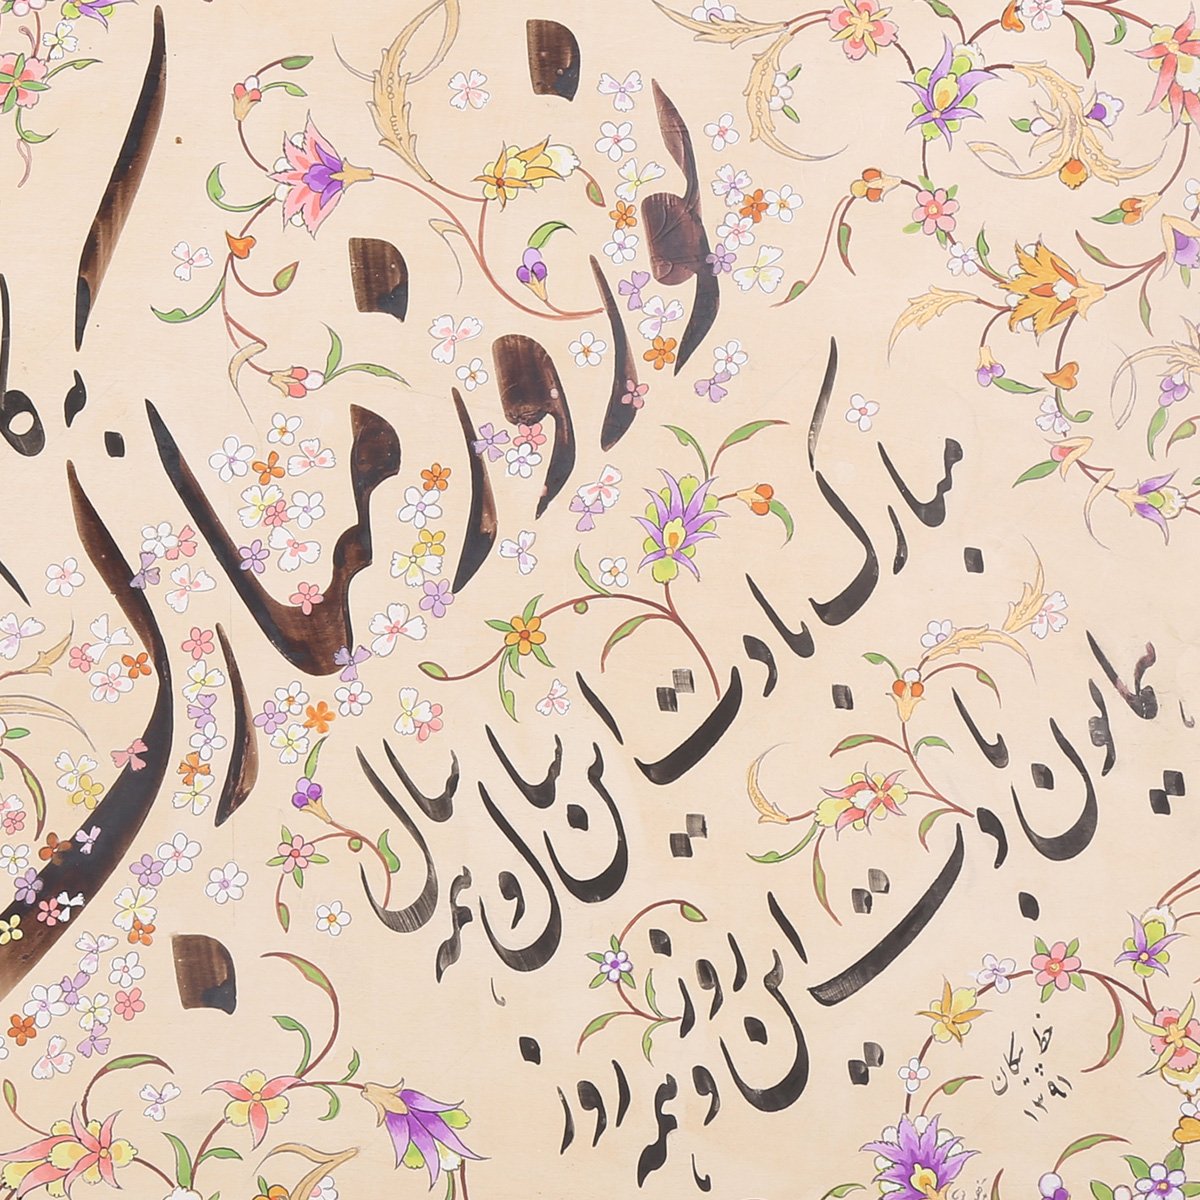 نوروز
مبارک بادت این سال و همه سال
همایون بادت این روز و همه روز
خط پیکان
۱۳۹۱